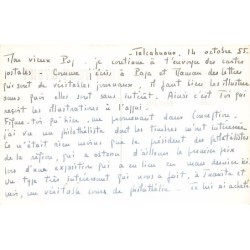 Talcahuano, 16 octobre 55.
Mon vieux Poj - je continue à t'envoyer des cartes
postales. Comme j'écris à Papa et Maman des lettres
qui sont de véritables journaux, il faut bien les illustrer
sans quoi elles sont sans intérêt. Ainsi c'est toi qui
reçoit les illustrations à l'appui.
Figure-toi qu'hier, en me promenant dans Concepcion,
j'ai vu un philatéliste dont les timbres m'ont intéressé.
Ce n'était rien moins que le président des philatélistes
de la région, qui a obtenu d'ailleurs le premier prix
lors d'une exposition qui a eu lieu en mars dernier ici.
Un type très intéressant qui nous a fait, à Jeannette et
moi, un véritable cours de philatélie. Je lui ai acheté